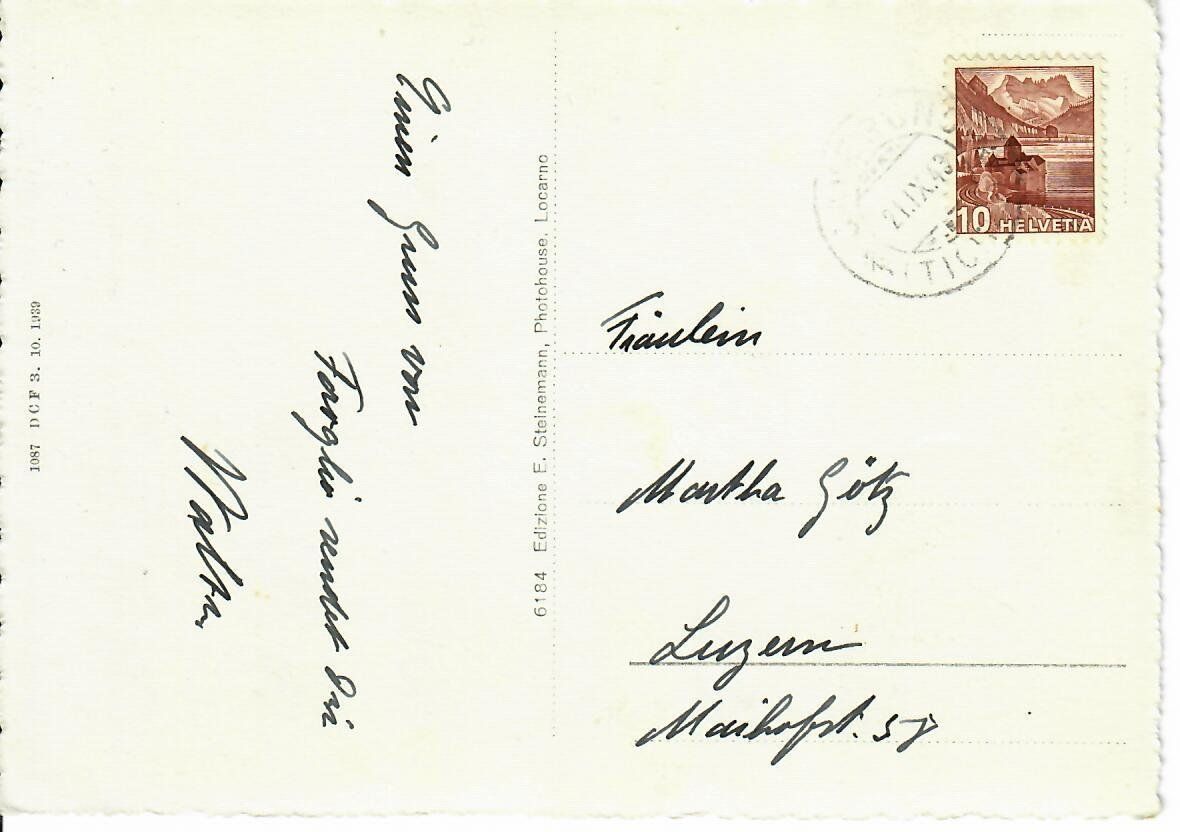 Einen Gruss von
Foroglio sendet Dir
Walter
1087 DCF 3. 10. 1939
6184 Edizione E. Steinemann, Photohouse, Locarno
21.IX.43
10 HELVETIA
Fräulein
Martha Götz
Luzern
Maihofst.